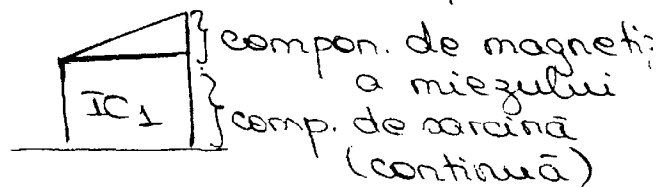 compon. de magneti
a miezului
IC1
comp. de sarcină
(continuă)